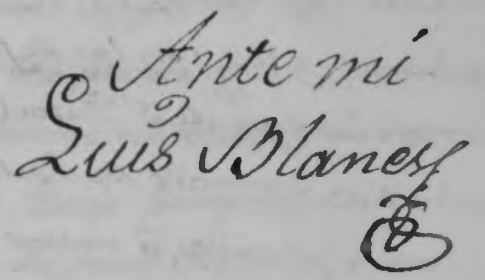 Ante mi
Luis Blanes